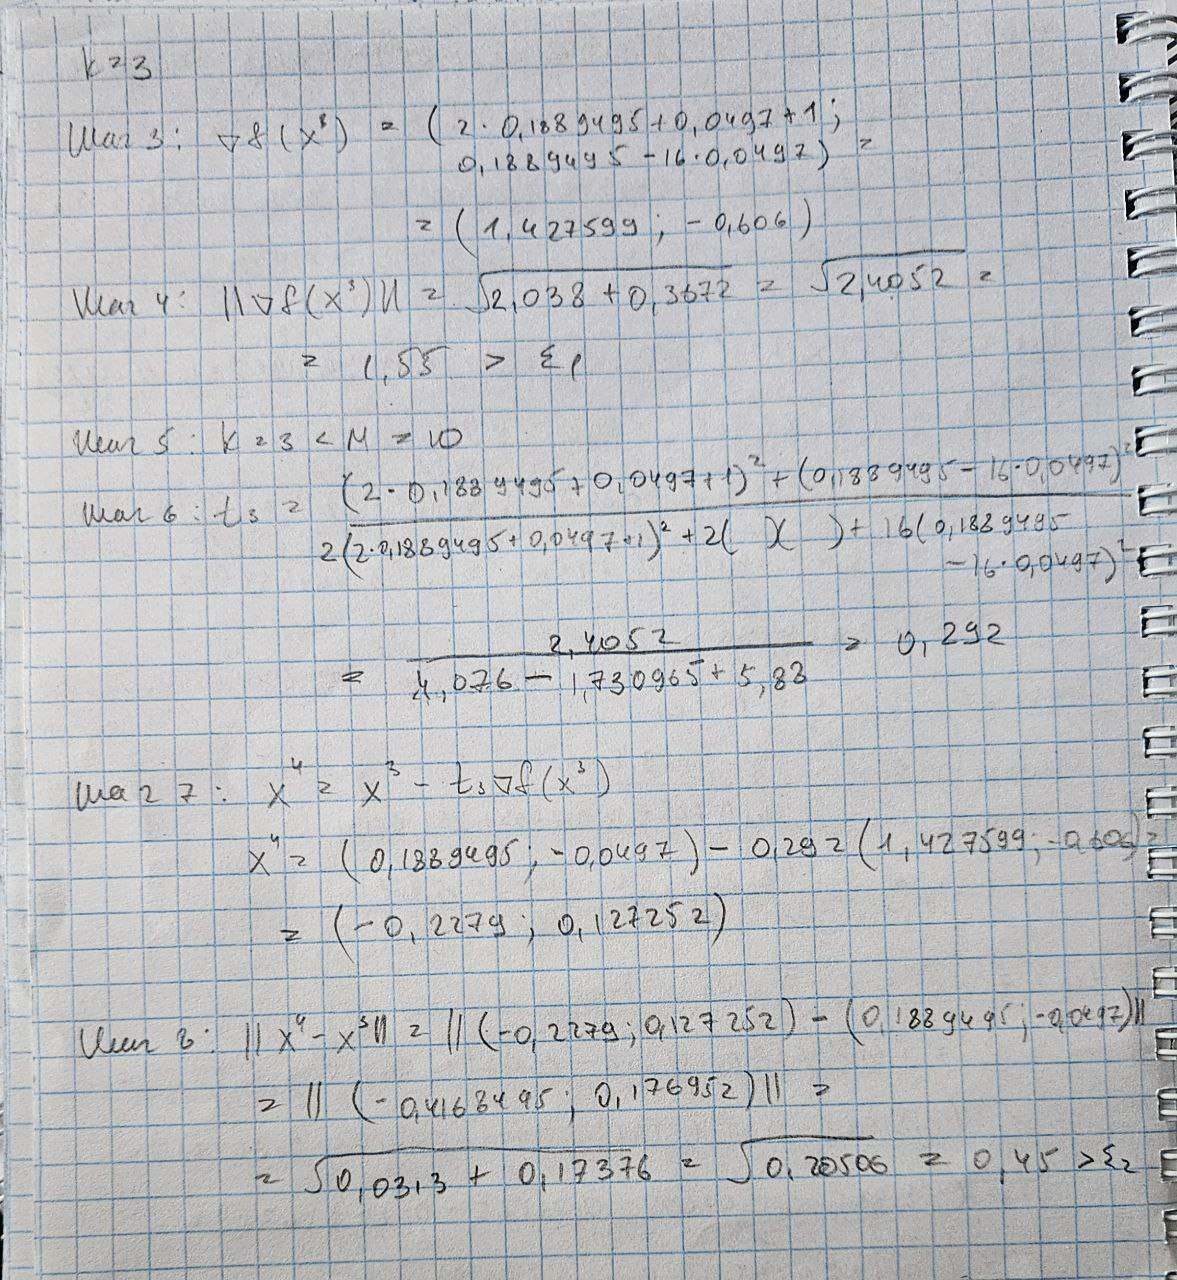 k=3
Шаг 3: ∇f(x³) = (2·0,1889495+0,0497+1;
0,1889495-16·0,0497) =
= (1,427599; -0,606)
Шаг 4: ||∇f(x³)|| = √2,038+0,3672 = √2,4052 =
= 1,55 > ε1
Шаг 5: k=3 < M = 10
Шаг 6: t₃ = (2·0,1889495+0,0497+1)²+(0,1889495-16·0,0497)²
2(2·0,1889495+0,0497+1)²+2( )( )+16(0,1889495
-16·0,0497)²
= 2,4052 / 4,076-1,730965+5,88 = 0,292
Шаг 7: x⁴ = x³ - t₃∇f(x³)
x⁴ = (0,1889495; -0,0497) - 0,292(1,427599; -0,606) =
= (-0,2279; 0,127252)
Шаг 8: ||x⁴-x³|| = ||(-0,2279; 0,127252)-(0,1889495; -0,0497)||
= ||(-0,4168495; 0,176952)|| =
= √0,0313+0,17376 = √0,20506 = 0,45 > ε2